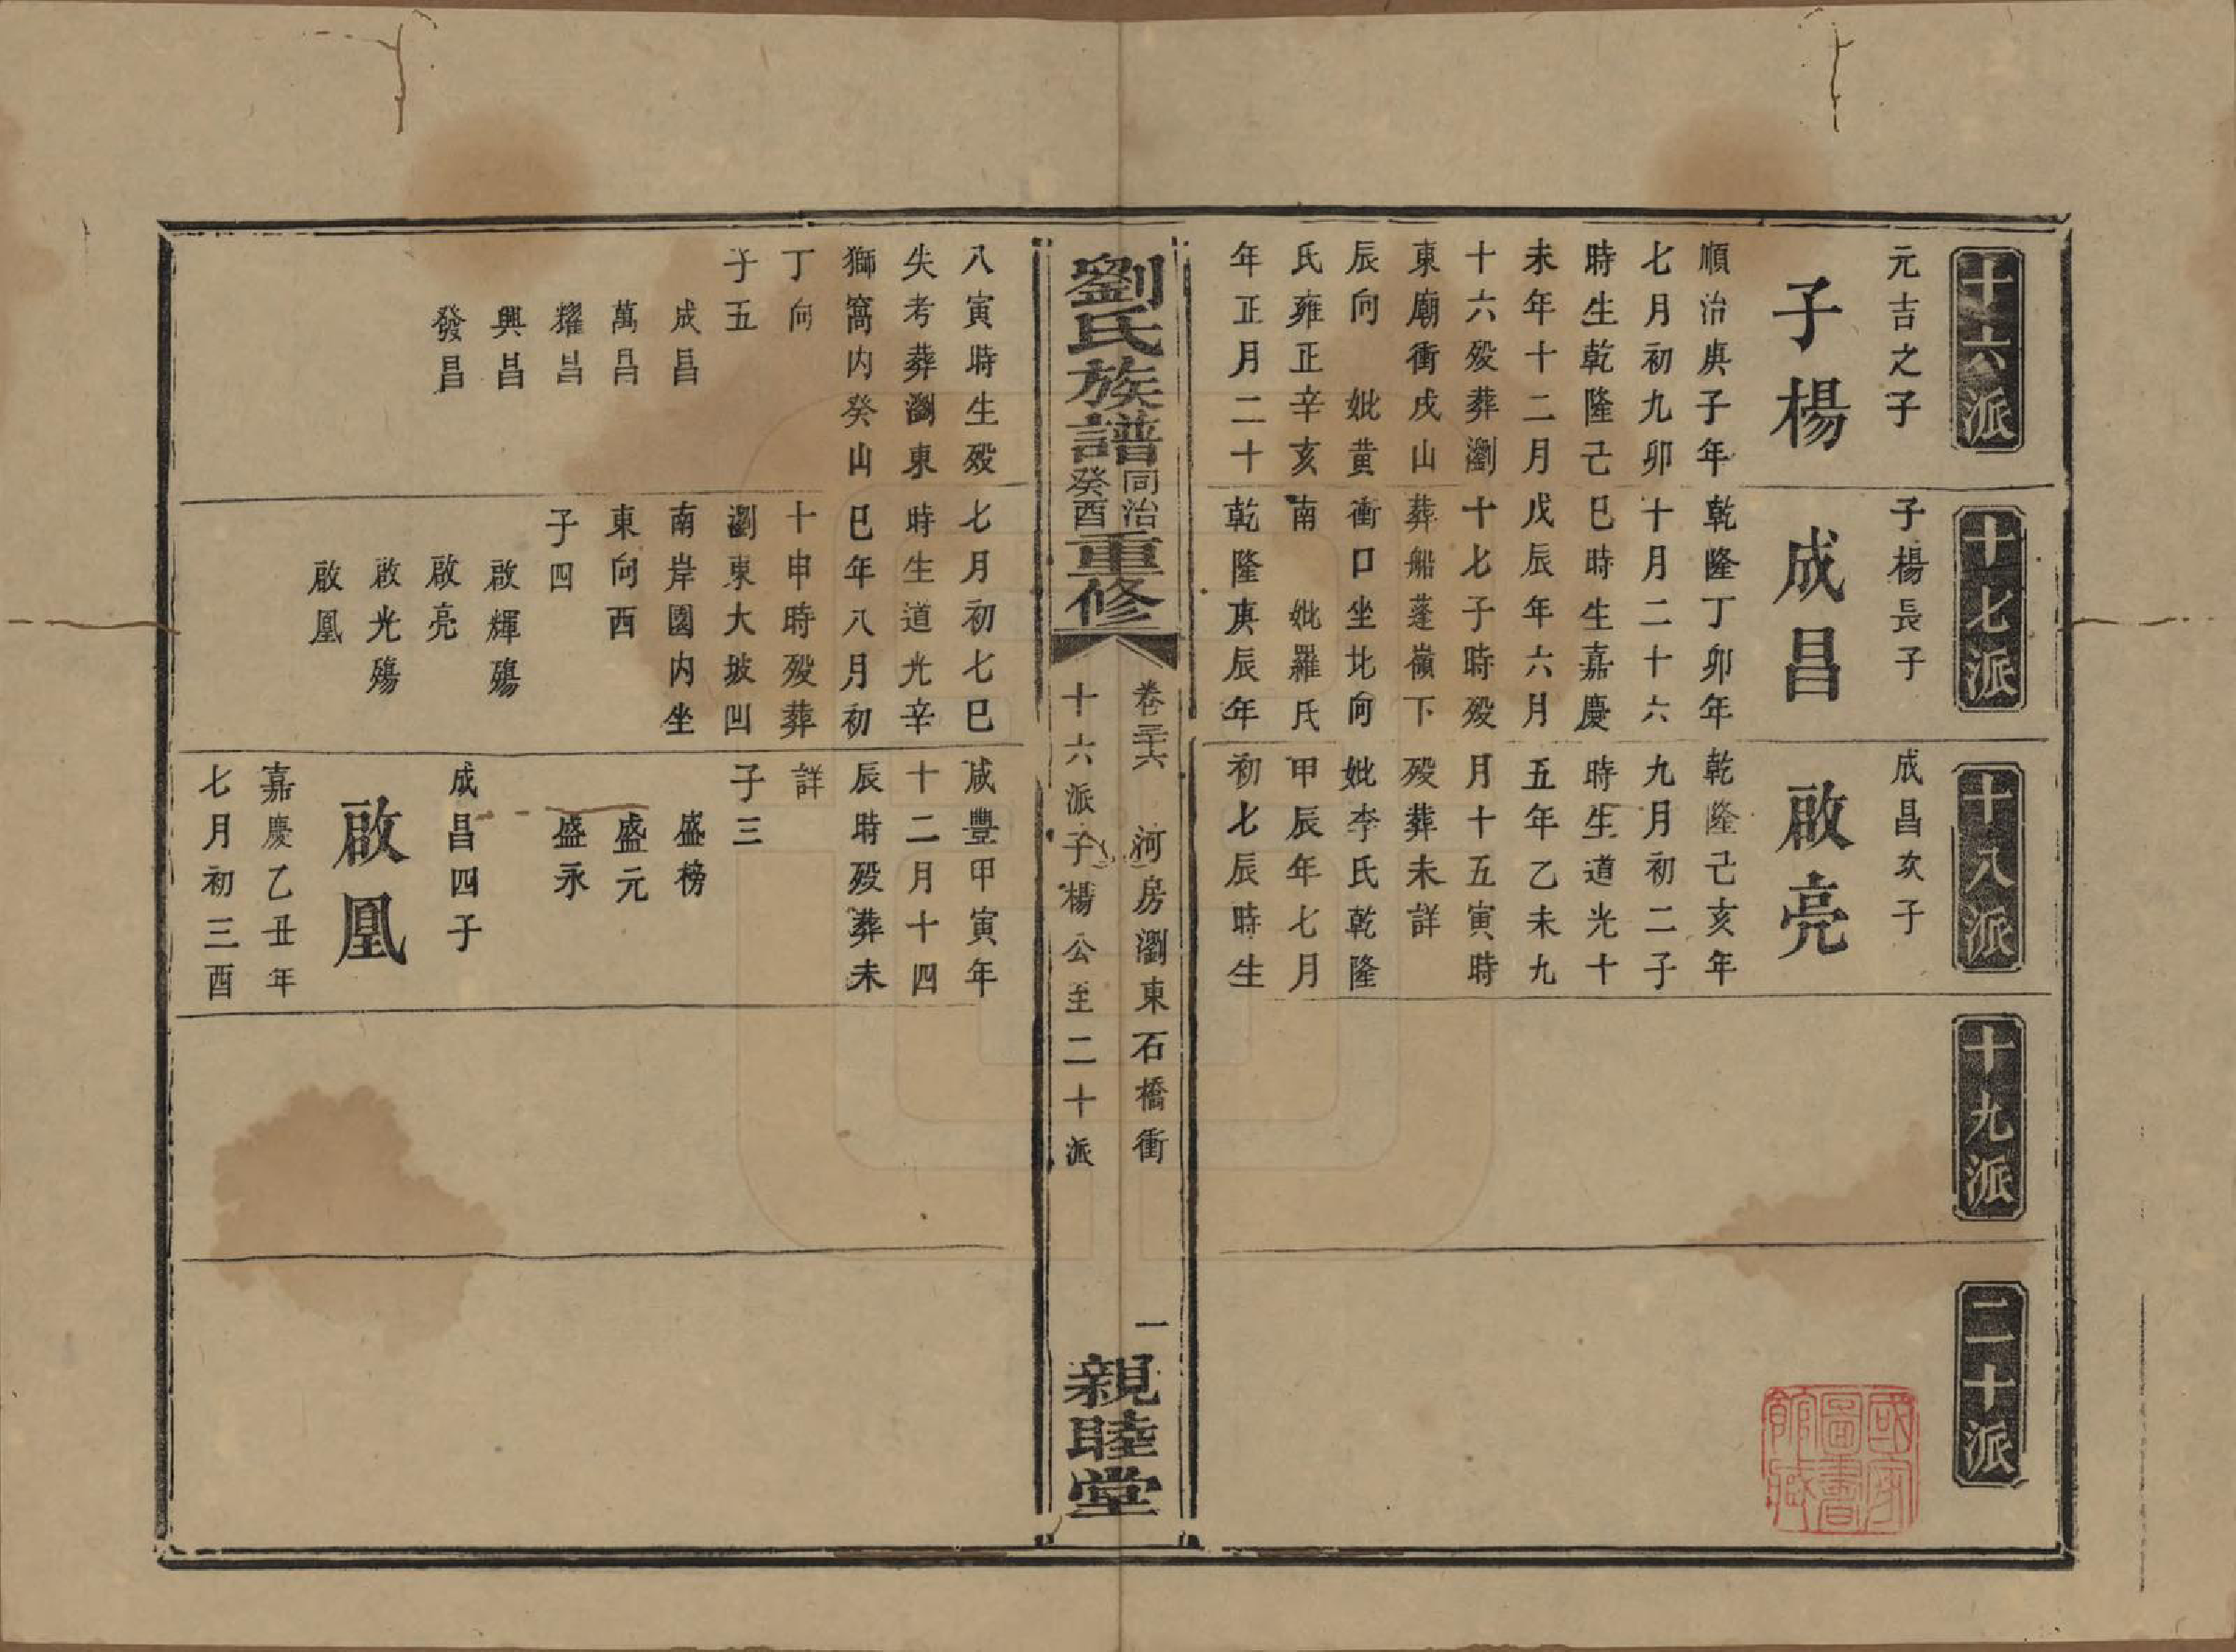 十六派
元吉之子
子楊
順治庚子年
七月初九卯
時生乾隆己
未年十二月
十六殁葬瀏
東廟衝戌山
辰向 妣黄
氏雍正辛亥
年正月二十
十七派
子楊長子
成昌
乾隆丁卯年
十月二十六
巳時生嘉慶
戊辰年六月
十七子時殁
葬船蓬嶺下
衝口坐北向
南 妣羅氏
乾隆庚辰年
十八派
成昌次子
啟亮
乾隆己亥年
九月初二子
時生道光十
五年乙未九
月十五寅時
殁葬未詳
妣李氏乾隆
甲辰年七月
初七辰時生
十九派
二十派
國家圖書館藏
劉氏族譜同治癸酉重修
卷三十六 河房瀏東石橋衝 一
十六派子楊公至二十派
親睦堂
八寅時生殁
失考葬瀏東
獅窩内癸山
丁向
子五
成昌
萬昌
耀昌
興昌
發昌
七月初七巳
時生道光辛
巳年八月初
十申時殁葬
瀏東大坡凹
南岸園内坐
東向西
子四
啟輝殤
啟亮
啟光殤
啟凰
咸豐甲寅年
十二月十四
辰時殁葬未
詳
子三
盛榜
盛元
盛永
成昌四子
啟凰
嘉慶乙丑年
七月初三酉